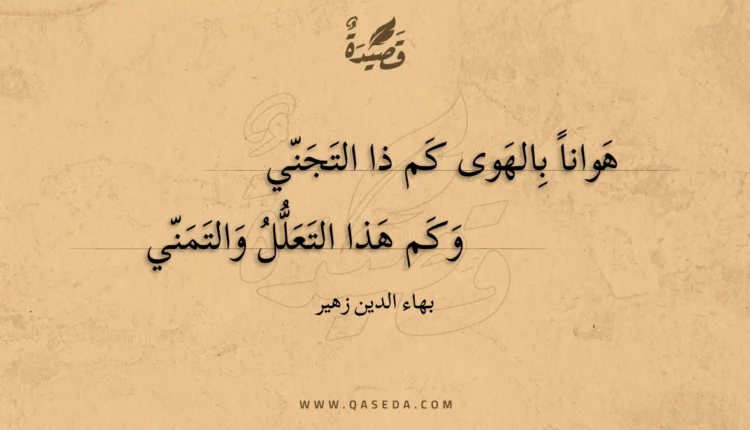 قَصِيدَةٌ
هَواناً بِالهَوى كَم ذا التَجَنّي
وَكَم هَذا التَعَلُّلُ وَالتَمَنّي
بهاء الدين زهير
WWW.QASEDA.COM